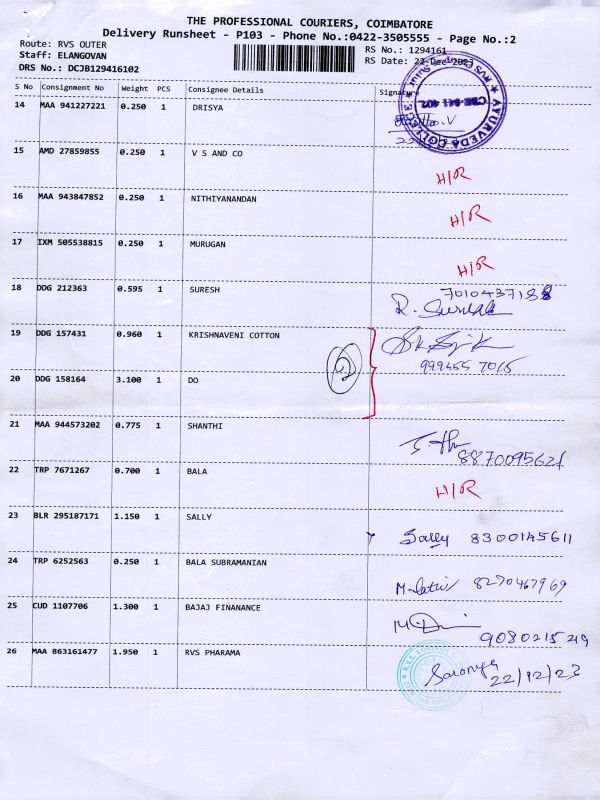 THE PROFESSIONAL COURIERS, COIMBATORE
Delivery Runsheet - P103 - Phone No.:0422-3505555 - Page No.:2
Route: RVS OUTER RS No.: 1294161
Staff: ELANGOVAN RS Date: 22-Dec-2023
DRS No.: DCJB129416102
S No Consignment No Weight PCS Consignee Details Signature
14 MAA 941227221 0.250 1 DRISYA
AYURVEDA COLLEGE
15 AMD 27859855 0.250 1 V S AND CO H/R
16 MAA 943847852 0.250 1 NITHIYANANDAN H/R
17 IXM 505538815 0.250 1 MURUGAN H/R
18 DDG 212363 0.595 1 SURESH
R. Suresh
19 DDG 157431 0.960 1 KRISHNAVENI COTTON
20 DDG 158164 3.100 1 DO
2
21 MAA 944573202 0.775 1 SHANTHI
8870095621
22 TRP 7671267 0.700 1 BALA H/R
23 BLR 295187171 1.150 1 SALLY Sally 8300145611
24 TRP 6252563 0.250 1 BALA SUBRAMANIAN 8270467969
25 CUD 1107706 1.300 1 BAJAJ FINANANCE
9080215219
26 MAA 863161477 1.950 1 RVS PHARAMA Saranya
22/12/23